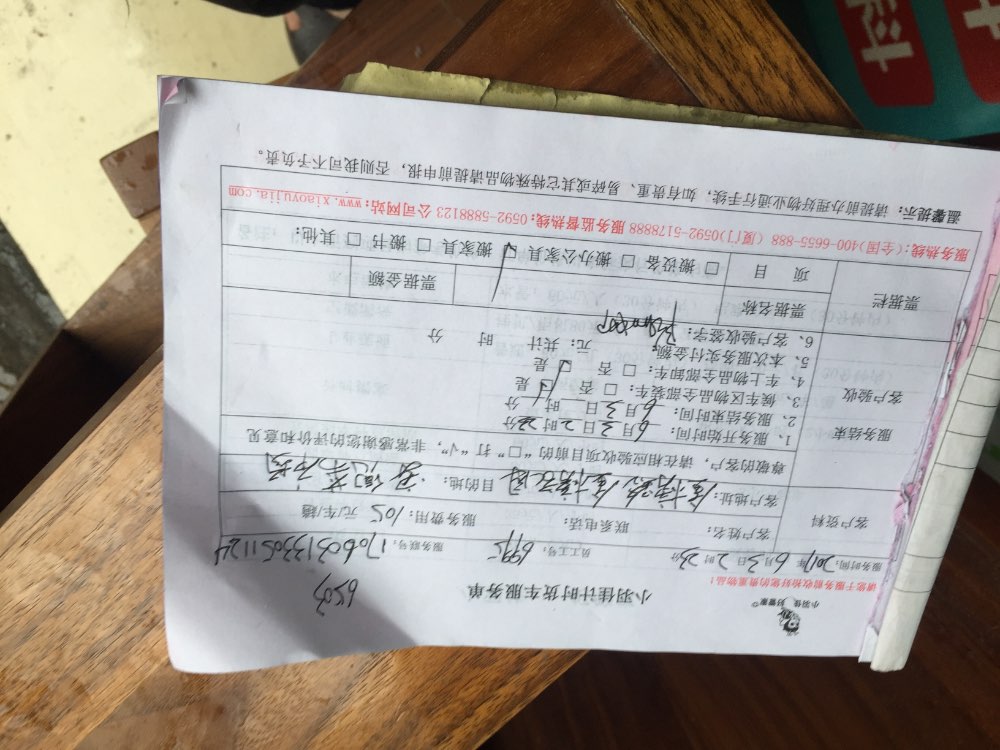 小羽佳 好管家
请您于服务前收拾好您的贵重物品!
小羽佳计时货车服务单
6503
服务时间: 2017年 6月3日 2时 分 员工工号: 服务账号: 170603133051124
客户资料
客户姓名: 联系电话: 服务费用: 105 元/车趟
客户地址: 目的地:
服务结束
客户验收
尊敬的客户, 请在相应验收项目前的“□”打“√”, 非常感谢您的评价和意见
1、服务开始时间: 6月3日2时 分
2、服务结束时间: 6月3日 时 分
3、候车区物品全部装车: □ 否 □ 是
4、车上物品全部卸车: □ 否 □ 是
5、本次服务实付金额: 元; 共计 时 分
6、客户验收签字:
票据栏
票据名称 票据金额
项 目 □ 搬设备 □ 搬办公家具 □ 搬家具 □ 搬书 □ 其他:
服务热线:(全国)400-6655-888 (厦门)0592-5178888 服务监督热线: 0592-5888123 公司网站: www.xiaoyujia.com
温馨提示: 请提前办理好物业通行手续, 如有贵重、易碎或其它特殊物品请提前申报, 否则我司不予负责。